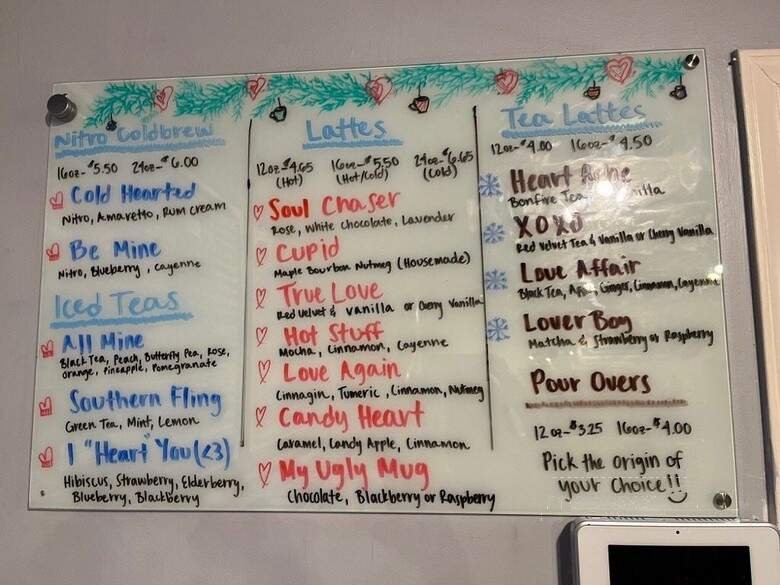 Nitro Coldbrew
16oz-$5.50 24oz-$6.00
Cold Hearted
Nitro, Amaretto, Rum cream
Be Mine
Nitro, Blueberry, cayenne
Iced Teas
All Mine
Black Tea, Peach, Butterfly Pea, Rose,
orange, Pineapple, Pomegranate
Southern Fling
Green Tea, Mint, Lemon
I "Heart" You (<3)
Hibiscus, Strawberry, Elderberry,
Blueberry, Blackberry
Lattes
12oz-$4.65 16oz-$5.50 24oz-$6.65
(Hot) (Hot/Cold) (Cold)
Soul Chaser
Rose, white chocolate, Lavender
Cupid
Maple Bourbon Nutmeg (Housemade)
True Love
Red Velvet & vanilla or Cherry Vanilla
Hot Stuff
Mocha, Cinnamon, Cayenne
Love Again
Cinnagin, Tumeric, Cinnamon, Nutmeg
Candy Heart
Caramel, Candy Apple, Cinnamon
My Ugly Mug
Chocolate, Blackberry or Raspberry
Tea Lattes
12oz-$4.00 16oz-$4.50
Heart
Bonfire Tea
XOXO
Red Velvet Tea & Vanilla or Cherry Vanilla
Love Affair
Black Tea, Apple, Ginger, Cinnamon, Cayenne
Lover Boy
Matcha & Strawberry or Raspberry
Pour Overs
12oz-$3.25 16oz-$4.00
Pick the origin of
your Choice!!